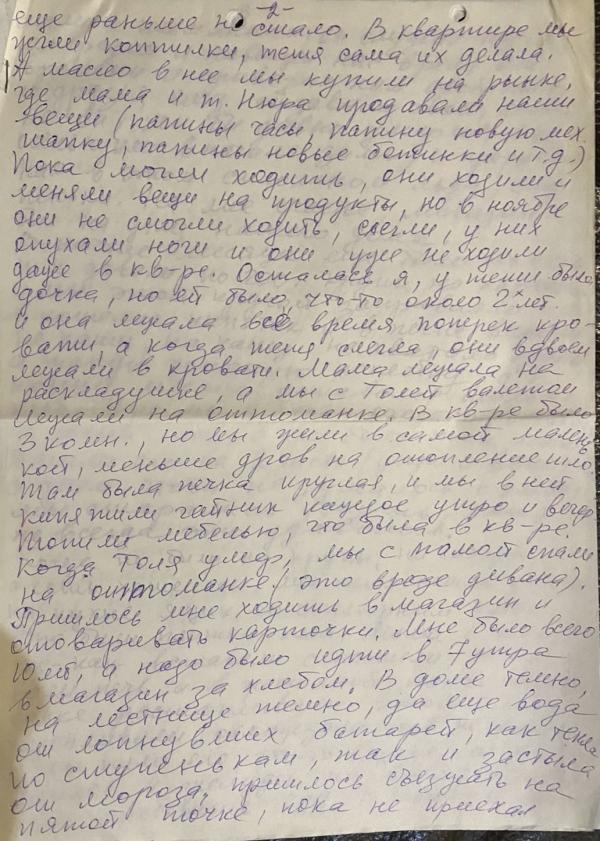 -2-
еще раньше не стало. В квартире мы
жгли коптилки, тетя сама их делала.
А масло в нее мы купили на рынке,
где мама и т. Нюра продавали наши
вещи (папины часы, папину новую мех.
шапку, папины новые ботинки и т.д.)
Пока могли ходить, они ходили и
меняли вещи на продукты, но в ноябре
они не смогли ходить, слегли, у них
опухали ноги и они уже не ходили
даже в кв-ре. Осталась я, у тети была
дочка, но ей было, что-то около 2х лет.
и она лежала всё время поперек кро-
вати, а когда тетя слегла, они вдвоем
лежали в кровати. Мама лежала на
раскладушке, а мы с Толей валетом
лежали на оттоманке. В кв-ре было
3 комн., но мы жили в самой малень
кой, меньше дров на отопление шло.
Там была печка круглая, и мы в ней
кипятили чайник каждое утро и вечер
Топили мебелью, что была в кв-ре.
Когда Толя умер, мы с мамой спали
на оттоманке (это вроде дивана).
Пришлось мне ходить в магазин и
отоваривать карточки. Мне было всего
10 лет, а надо было идти в 7 утра
в магазин за хлебом. В доме темно,
на лестнице темно, да еще вода
от лопнувших батарей, как текла
по ступенькам, так и застыла
от мороза, пришлось съезжать на
пятой точке, пока не приехал